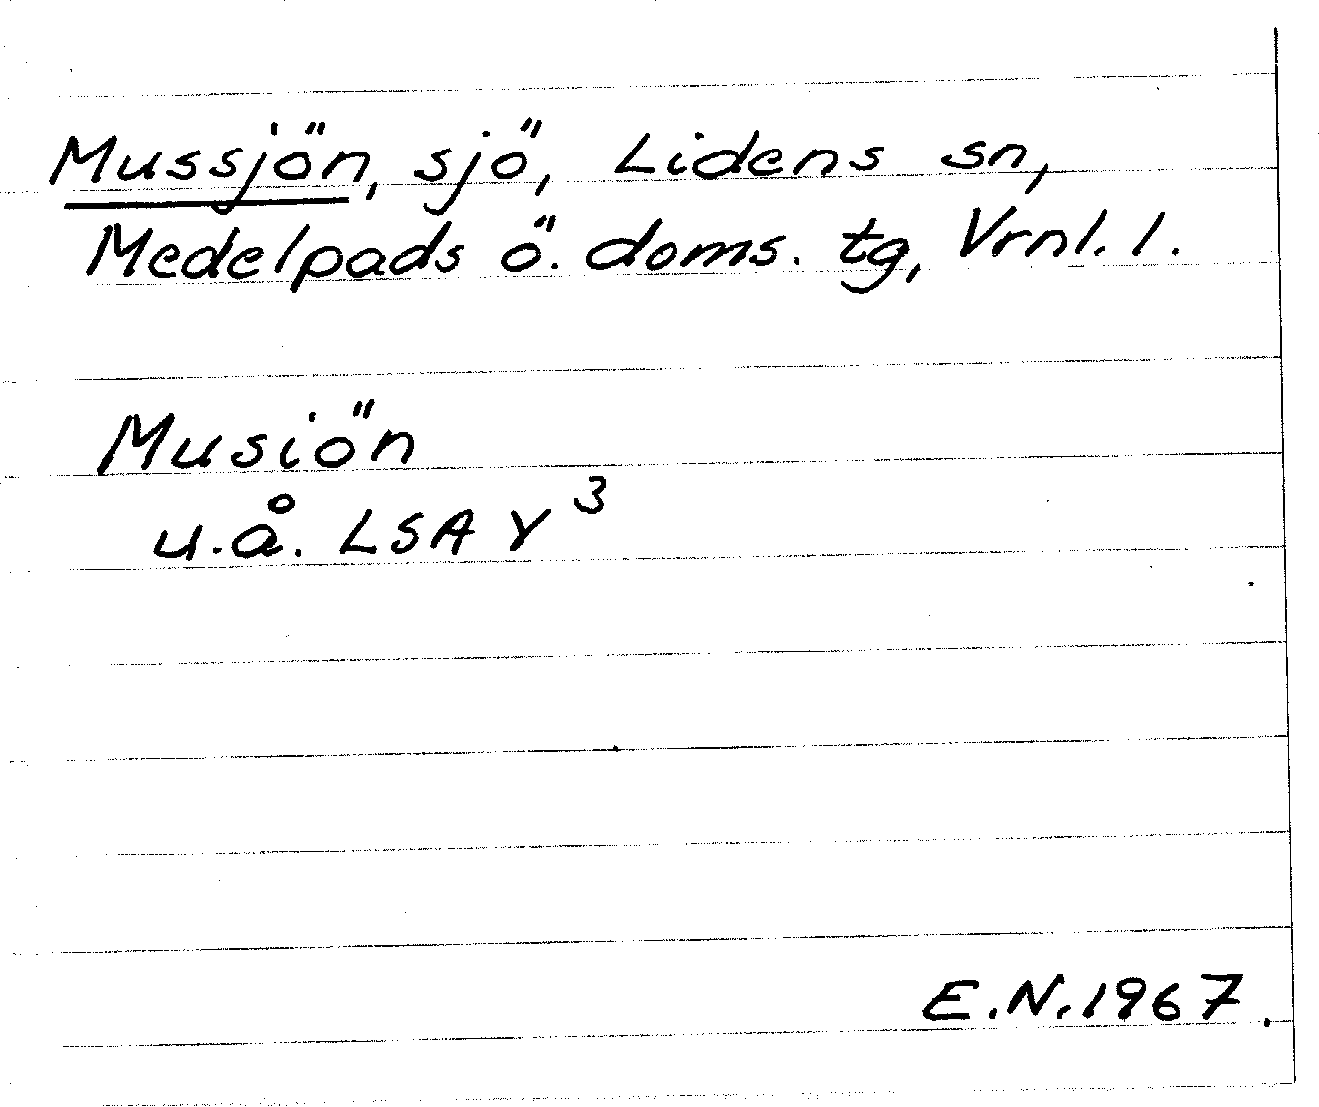 Mussjön, sjö, Lidens sn,
Medelpads ö. doms. tg, Vrnl. l.
Musiön
u.å. LSA Y³
E.N. 1967.